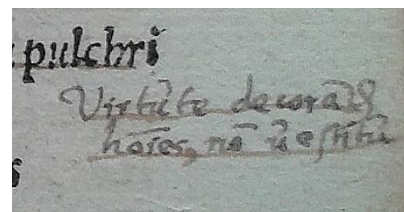 pulchri
Virtute decorari
hoies, nō uestitu
s